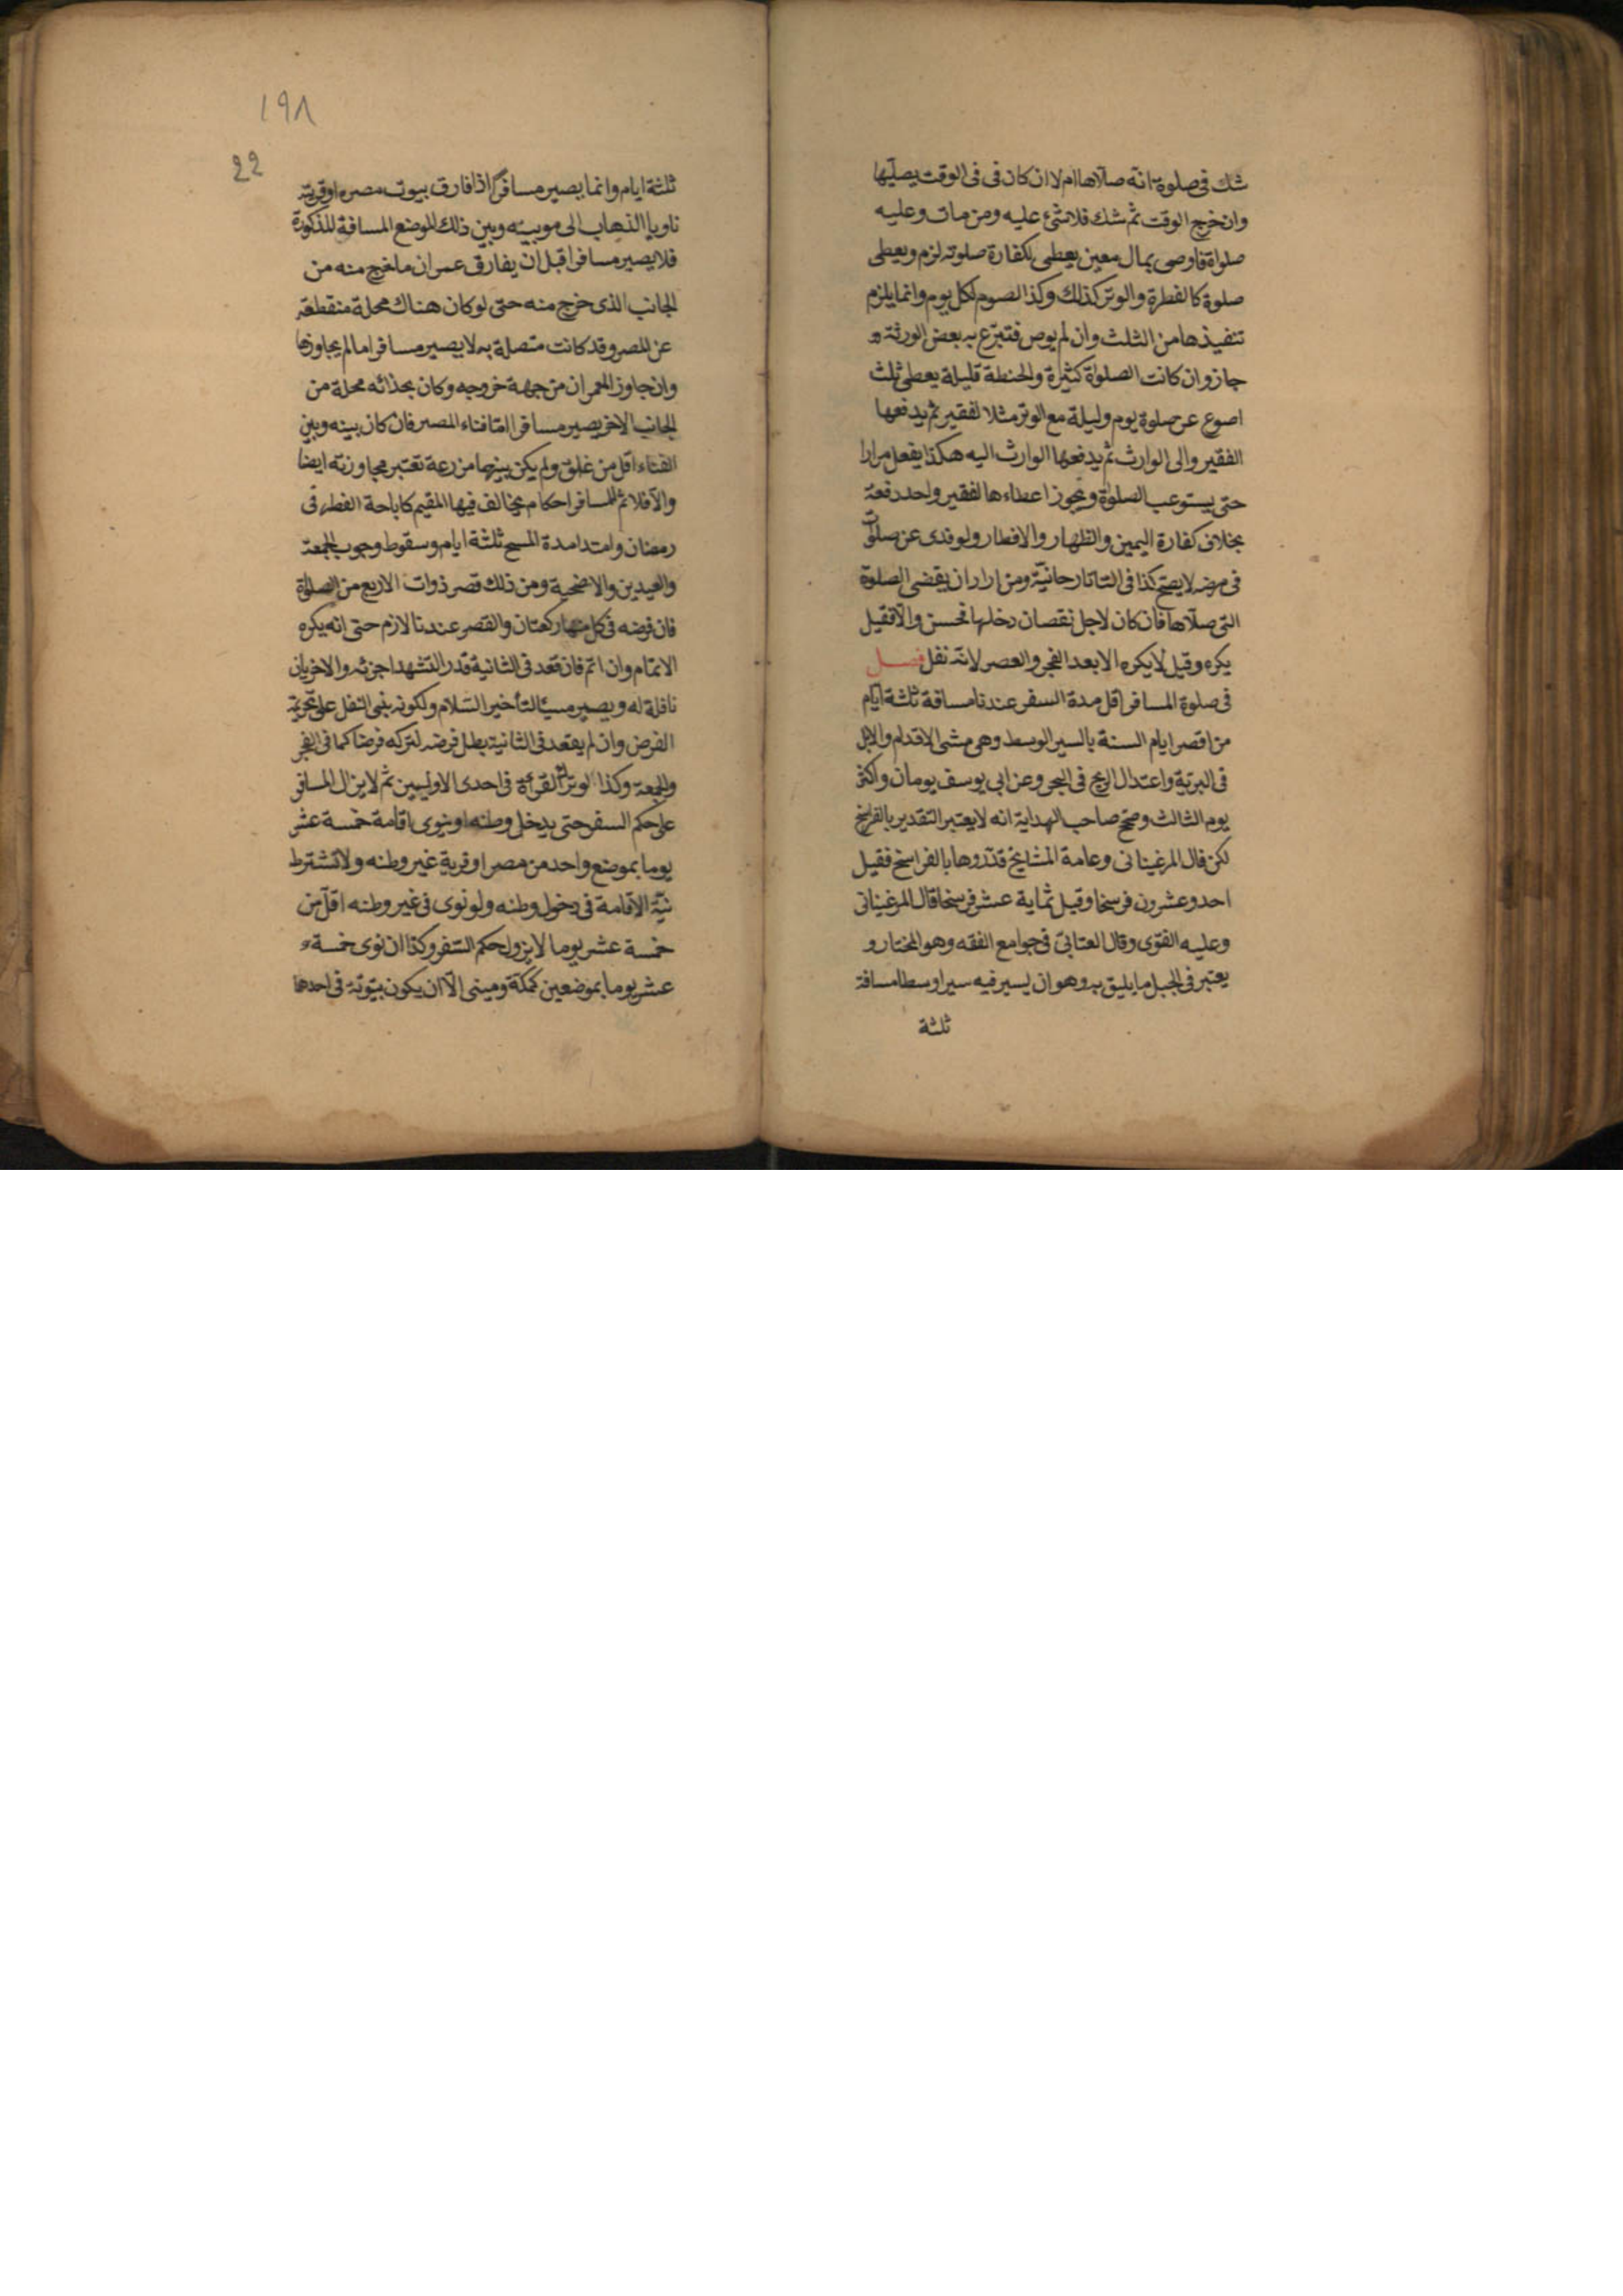 شك فى صلوة انه صلاها ام لا ان كان فى فى الوقت يصليها
وان خرج الوقت ثم شك فلا شئ عليه ومن مات وعليه
صلواة فاوصى بمال معين يعطى لكفارة صلوته لزم ويعطى
صلوة كالفطرة والوتر كذلك وكذا الصوم لكل يوم وانما يلزم
تنفيذها من الثلث وان لم يوص فتبرع به بعض الورثة
جاز وان كانت الصلواة كثيرة والحنطة قليلة يعطى ثلث
اصوع عن صلوة يوم وليلة مع الوتر مثلا لفقير ثم يدفعها
الفقير والى الوارث ثم يدفعها الوارث اليه هكذا يفعل مرارا
حتى يستوعب الصلواة ويجوز اعطاءها لفقير واحد دفعة
بخلاف كفارة اليمين والظهار والافطار ولو فدى عن صلوات
فى مرضه لا يصح كذا فى التاتارحانية ومن اراد ان يقضى الصلوة
التى صلاها فان كان لاجل نقصان دخلها فحسن والا فقيل
يكره وقيل لا يكره الا بعد الفجر والعصر لانه نفل فصل
فى صلوة المسافر اقل مدة السفر عندنا مسافة ثلثة ايام
من اقصر ايام السنة بالسير الوسط وهى مشى الاقدام والابل
فى البرية واعتدال الريح فى البحر وعن ابى يوسف يومان واكثر
يوم الثالث وصحح صاحب الهداية انه لا يعتبر التقدير بالفراسخ
لكن قال المرغينانى وعامة المشايخ قدروها بالفراسخ فقيل
احد وعشرون فرسخا وقيل ثماية عشر فرسخا قال المرغينانى
وعليه الفتوى وقال العتابى فى جوامع الفقه وهو المختار و
يعتبر فى الجبل ما يليق به وهو ان يسير فيه سيرا وسطا مسافة
ثلثة
١٩٨
22
ثلثة ايام وانما يصير مسافرا اذا فارق بيوت مصره او قريته
ناويا الذهاب الى موبينه وبين ذلك الموضع المسافة المذكورة
فلا يصير مسافرا قبل ان يفارق عمران ما خرج منه من
الجانب الذى خرج منه حتى لو كان هناك محلة منقطعة
عن المصر وقد كانت متصلة به لا يصير مسافرا ما لم يجاوزها
وان جاوز العمران من جهة خروجه وكان بحذائه محلة من
الجانب الاخر يصير مسافرا اما فناء المصر فان كان بينه وبين
الفناء اقل من غلق ولم يكن بينهما مزرعة تعتبر مجاوزته ايضا
والا فلا ثم للمسافر احكام يخالف فيها المقيم كاباحة الفطر فى
رمضان وامتداد مدة المسح ثلثة ايام وسقوط وجوب الجمعة
والعيدين والاضحية ومن ذلك قصر ذوات الاربع من الصلواة
فان فرضه فى كل منها ركعتان والقصر عندنا لازم حتى انه يكره
الاتمام وان اتم فان قعد فى الثانية قدر التشهد اجزئه والاخريان
نافلة له ويصير مسيئا لتأخير السلام ولكونه بنى النفل على تحريمة
الفرض وان لم يقعد فى الثانية بطل فرضه لتركه فرضا كما فى الفجر
والجمعة وكذا لو ترك القرأة فى احدى الاوليين ثم لا يزال المسافر
على حكم السفر حتى يدخل وطنه او ينوى اقامة خمسة عشر
يوما بموضع واحد من مصر او قرية غير وطنه ولا تشترط
نية الاقامة فى دخول وطنه ولو نوى فى غير وطنه اقل من
خمسة عشر يوما لا يزول حكم السفر وكذا ان نوى خمسة
عشر يوما بموضعين كمكة ومينى الا ان يكون بيتوتة فى احدها